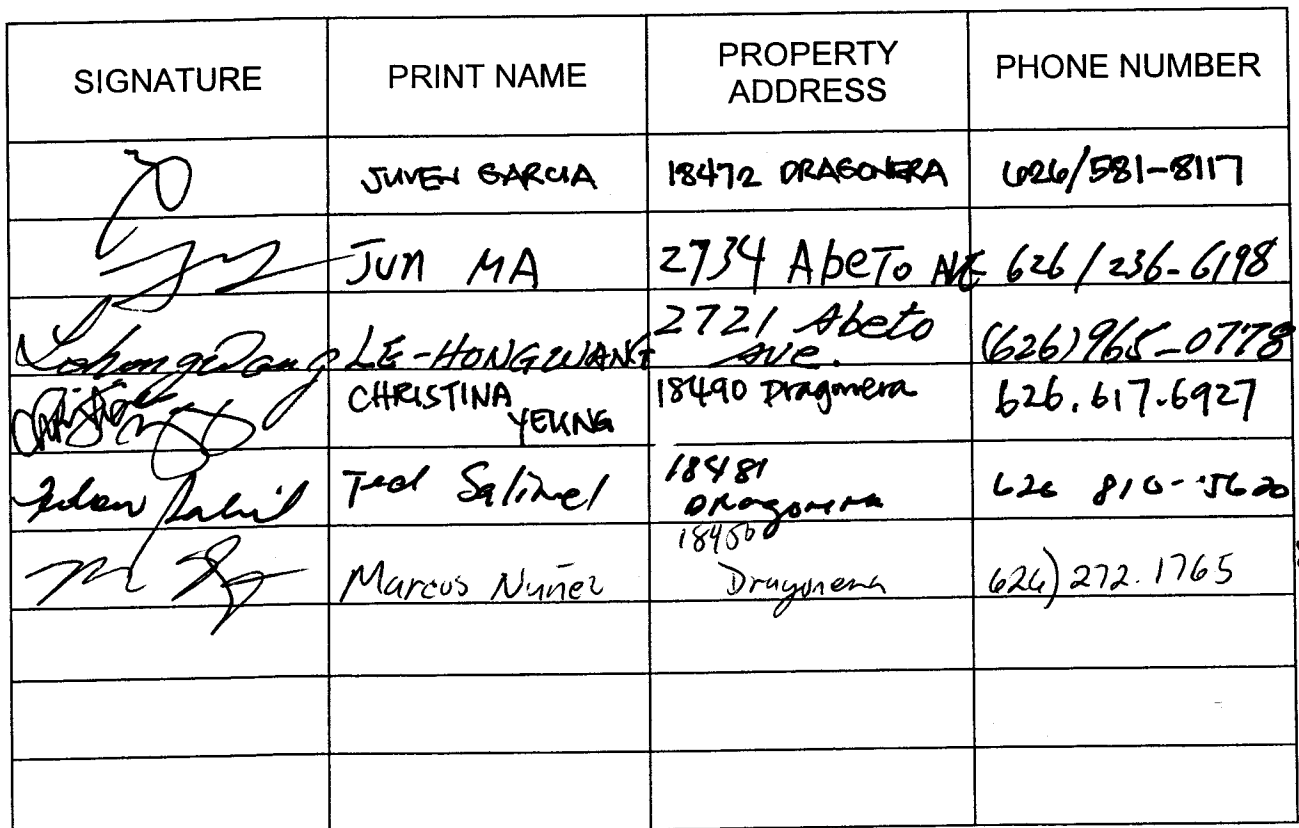 SIGNATURE PRINT NAME PROPERTY ADDRESS PHONE NUMBER
JUVEN GARCIA 18472 DRAGONERA 626/581-8117
JUN MA 2734 AbeTo AVE 626/236-6198
Lehongwang LE-HONG WANG 2721 Abeto Ave. (626)965-0778
CHRISTINA YEUNG 18490 Dragonera 626.617.6927
Ted 18481 DRagonera 626 810-5620
Marcus Nuñez 18450 Dragonera 626)272.1765